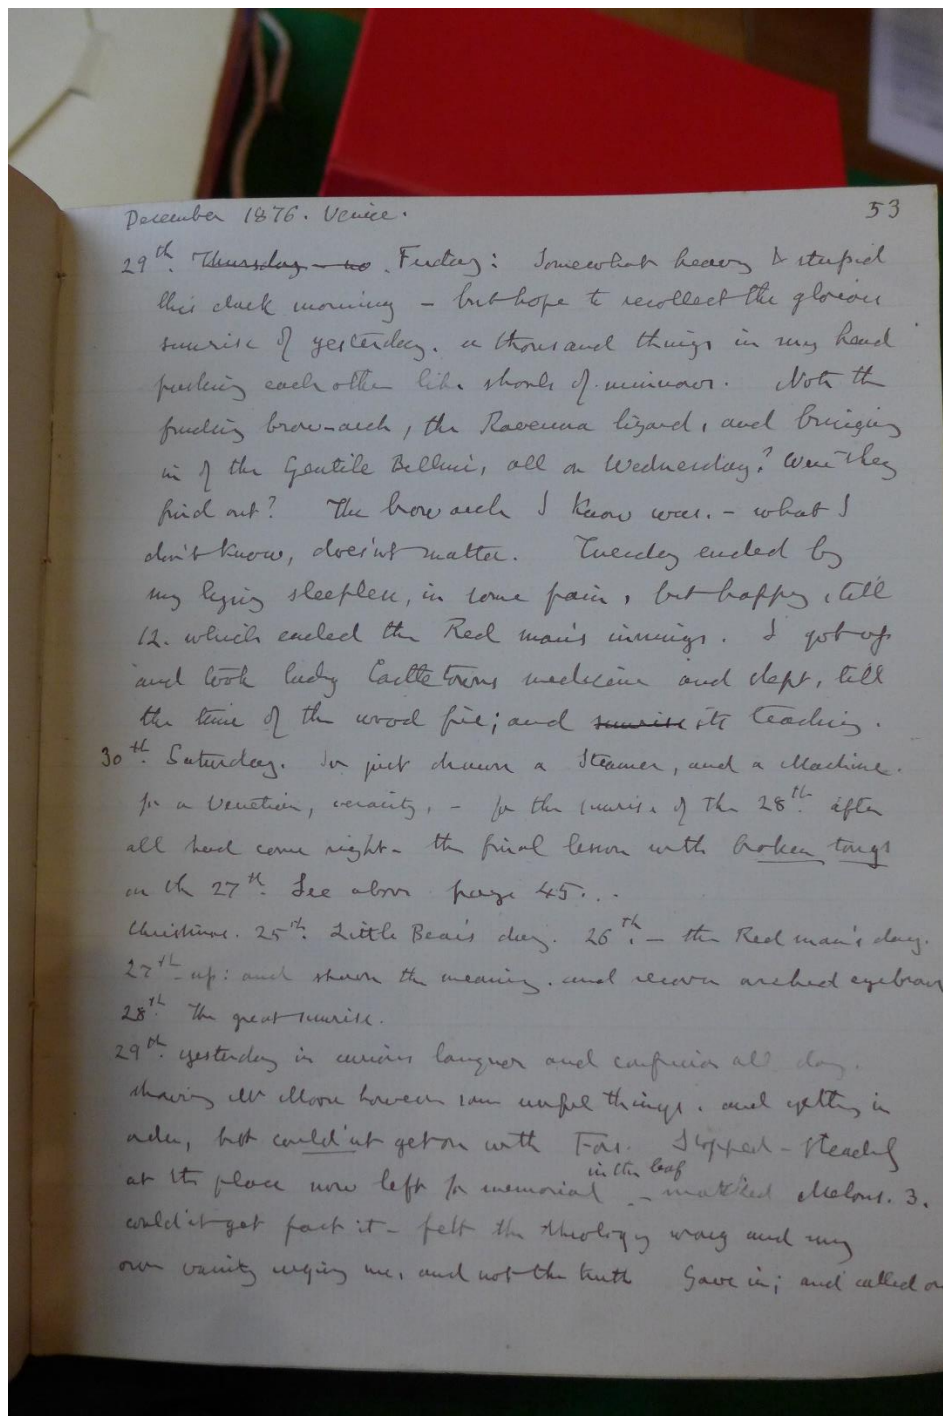 December 1876. Venice. 53
29th. Thursday – no. Friday: Somewhat heavy & stupid
this dark morning – but hope to recollect the glorious
sunrise of yesterday. a thousand things in my head
pushing each other like shoals of minnows. Note the
finding brow-arch, the Ravenna lizard, and bringing
in of the Gentile Bellini, all on Wednesday? Were they
find out? The brow arch I know was. – what I
don't know, does'nt matter. Tuesday ended by
my lying sleepless, in some pain, but happy, till
12. which ended the Red man's innings. I got up
and took Lady Castletowns medicine and slept, till
the time of the wood fire; and sunrise its teaching.
30th. Saturday. I've just drawn a Steamer, and a Machine.
for a Venetian, veracity, – for the sunrise of The 28th. after
all had come right – the final lesson with broken tongs
on th 27th. See above page 45...
Christmas. 25th. Little Bear's day. 26th. – the Red man's day.
27th – up: and shown the meaning. and recover arched eyebrow
28th. The great sunrise.
29th. yesterday in curious languor and confusion all day.
showing Mr Moore however some useful things. and getting in
order, but could'nt get on with Fors. Stopped – steadily
in the leaf
at the place now left for memorial – marked Melons. 3.
could'nt get past it – felt the theology wrong and my
own vanity urging me, and not the truth Gave in; and called on